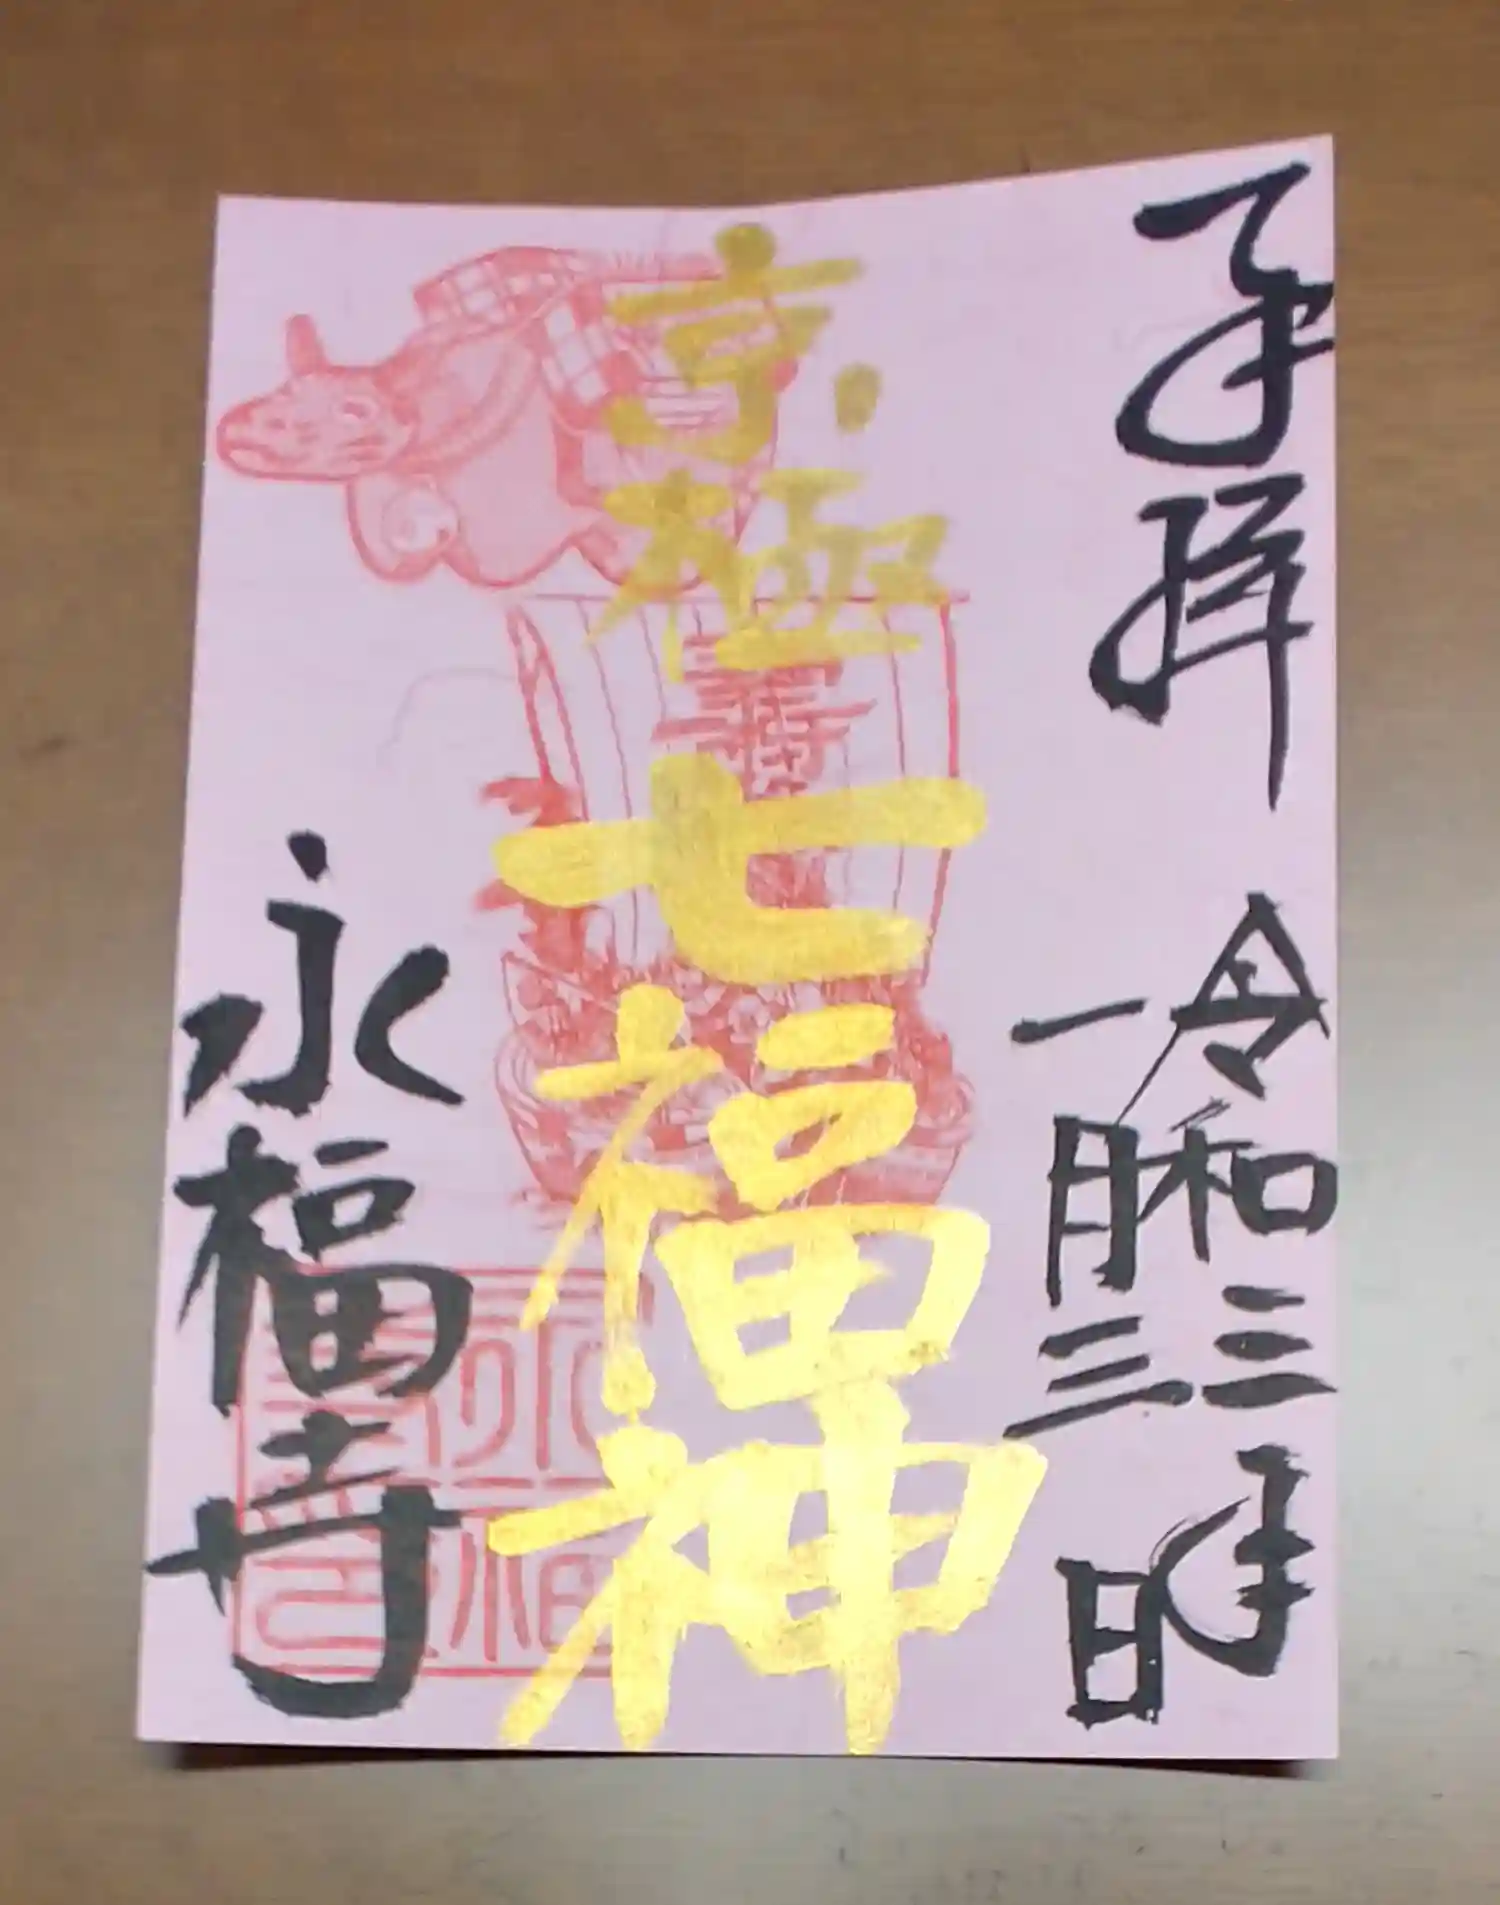 奉拝
令和三年
一月三日
京極
七福神
永福寺